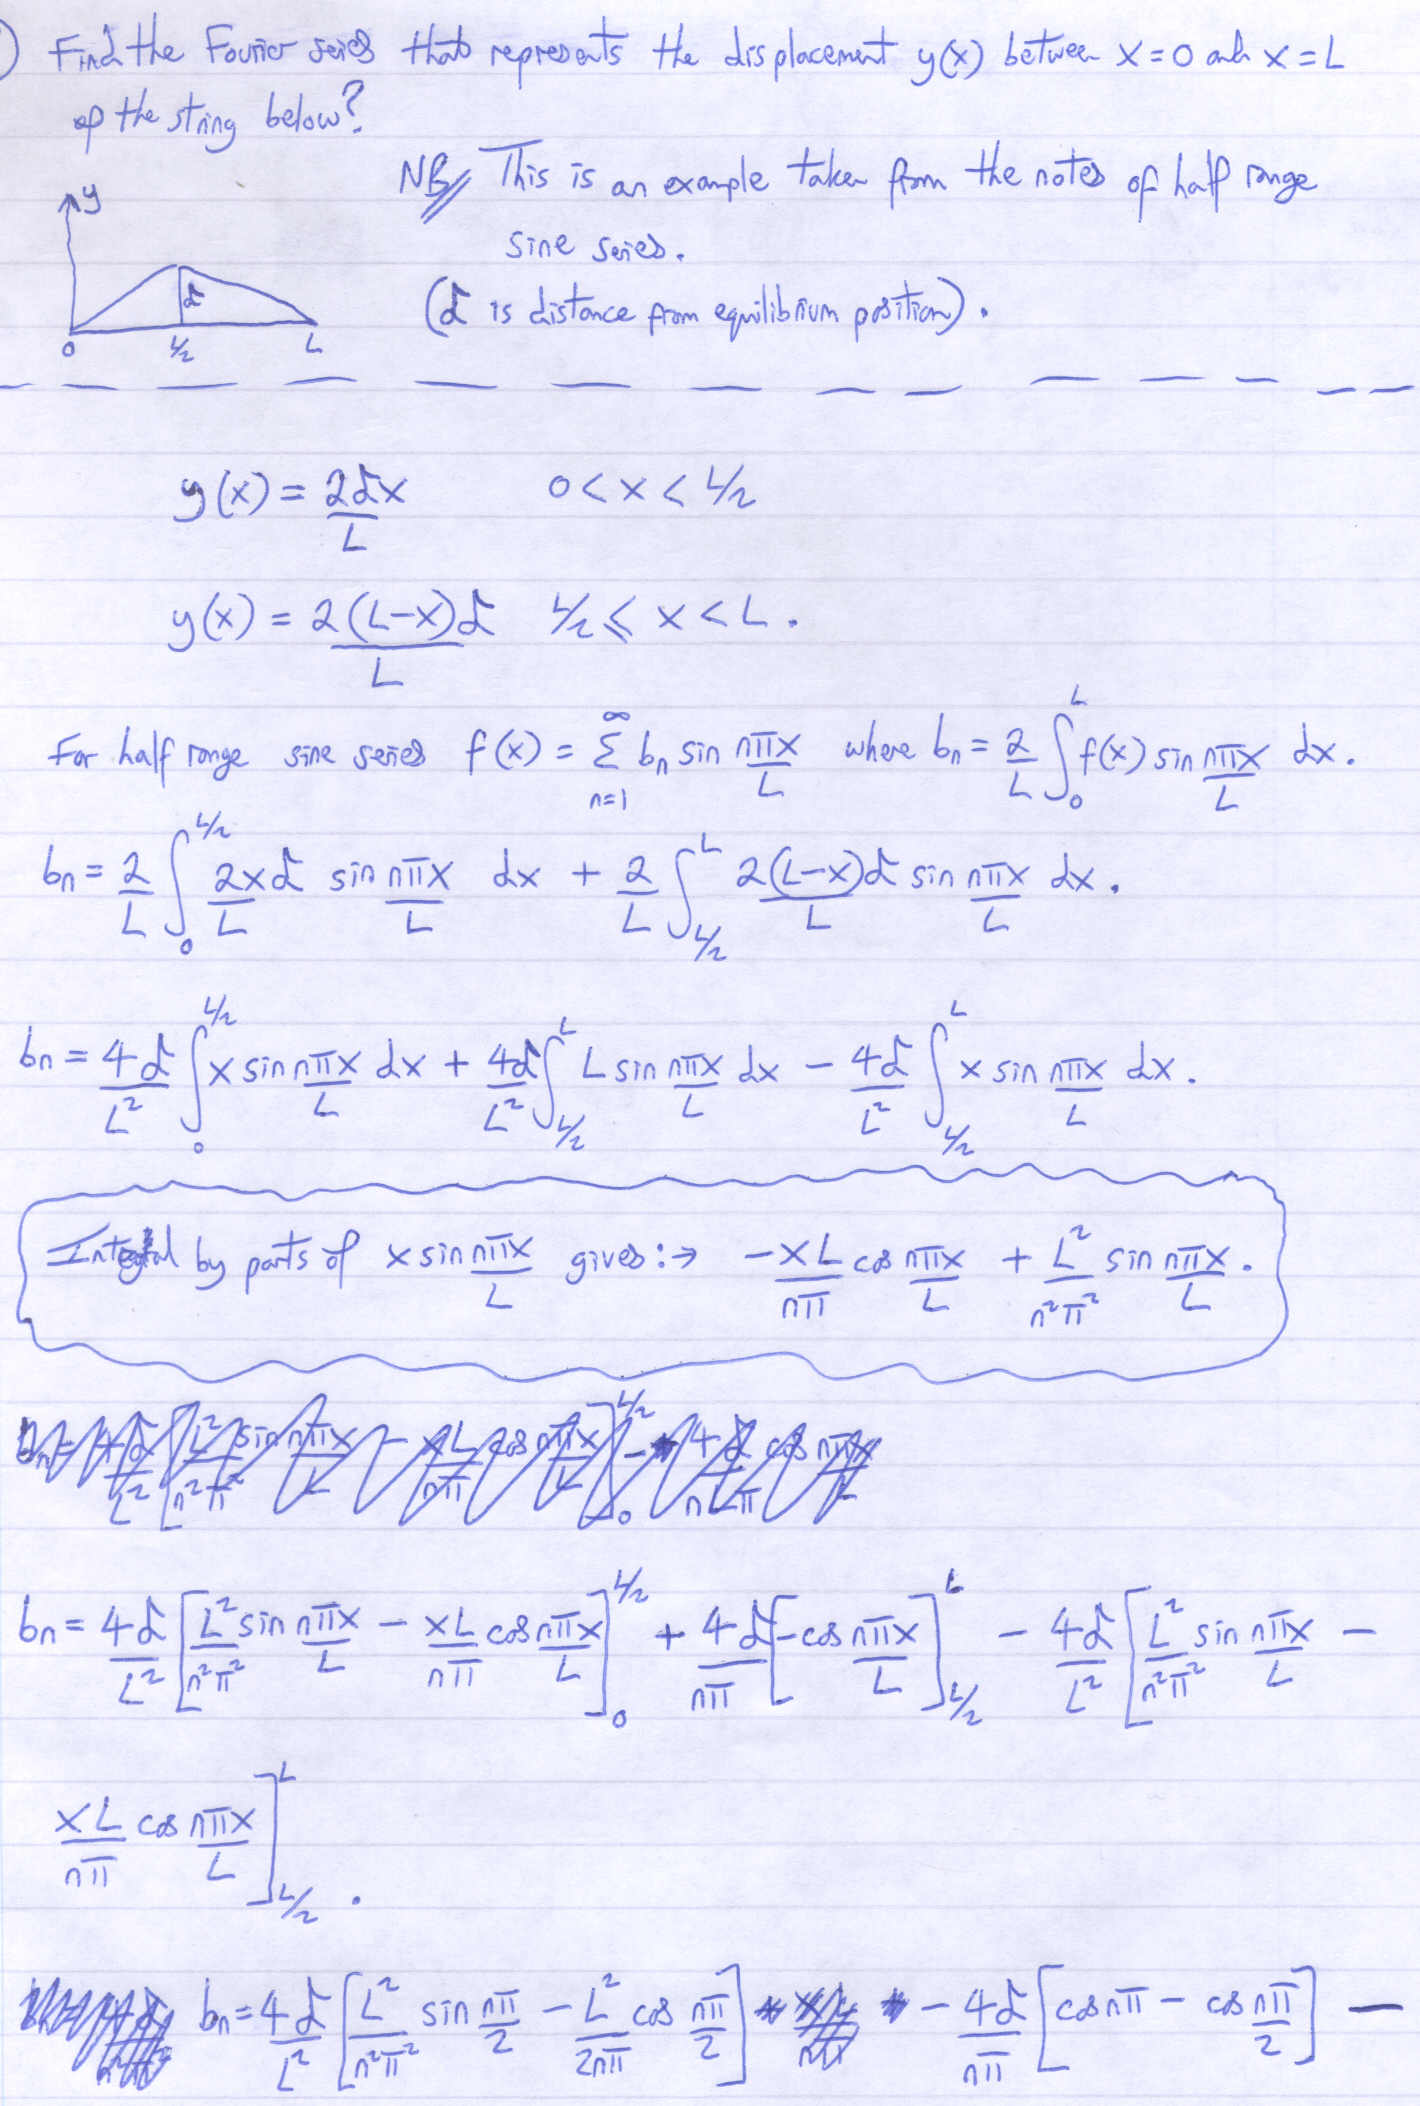 ) Find the Fourier series that represents the displacement y(x) between x=0 and x=L
of the string below?
NB// This is an example taken from the notes of half range
sine series.
(d is distance from equilibrium position).
y
d
0 L/2 L
y(x) = 2dx/L 0<x<L/2
y(x) = 2(L-x)d/L L/2 ≤ x < L.
For half range sine series f(x) = Σ_{n=1}^{∞} bn sin nπx/L where bn = 2/L ∫_0^L f(x) sin nπx/L dx.
bn = 2/L ∫_0^{L/2} 2xd/L sin nπx/L dx + 2/L ∫_{L/2}^L 2(L-x)d/L sin nπx/L dx.
bn = 4d/L² ∫_0^{L/2} x sin nπx/L dx + 4d/L² ∫_{L/2}^L L sin nπx/L dx - 4d/L² ∫_{L/2}^L x sin nπx/L dx.
Integral by parts of x sin nπx/L gives:→ -xL/nπ cos nπx/L + L²/n²π² sin nπx/L.
bn = 4d/L² [L²/n²π² sin nπx/L - xL/nπ cos nπx/L]_0^{L/2} + 4d/nπ [-cos nπx/L]_{L/2}^L - 4d/L² [L²/n²π² sin nπx/L -
xL/nπ cos nπx/L]_{L/2}^L.
bn = 4d/L² [L²/n²π² sin nπ/2 - L²/2nπ cos nπ/2] - 4d/nπ [cos nπ - cos nπ/2] -